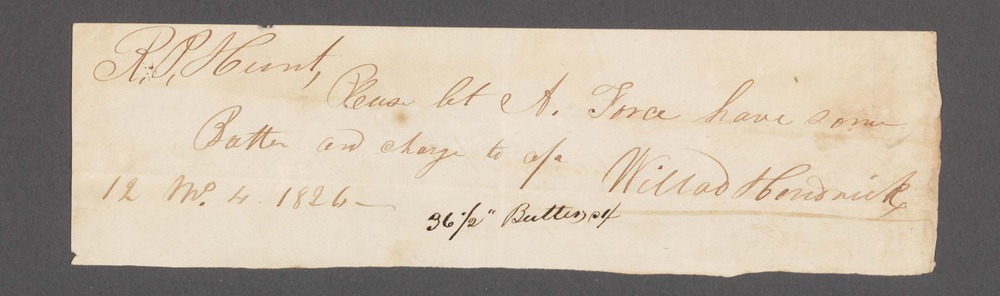 R. P. Hunt,
Please let A. Force have some
Butter and charge to a/c
Willad Hendrick
12 Mo. 4. 1826—
36 1/2" Butter